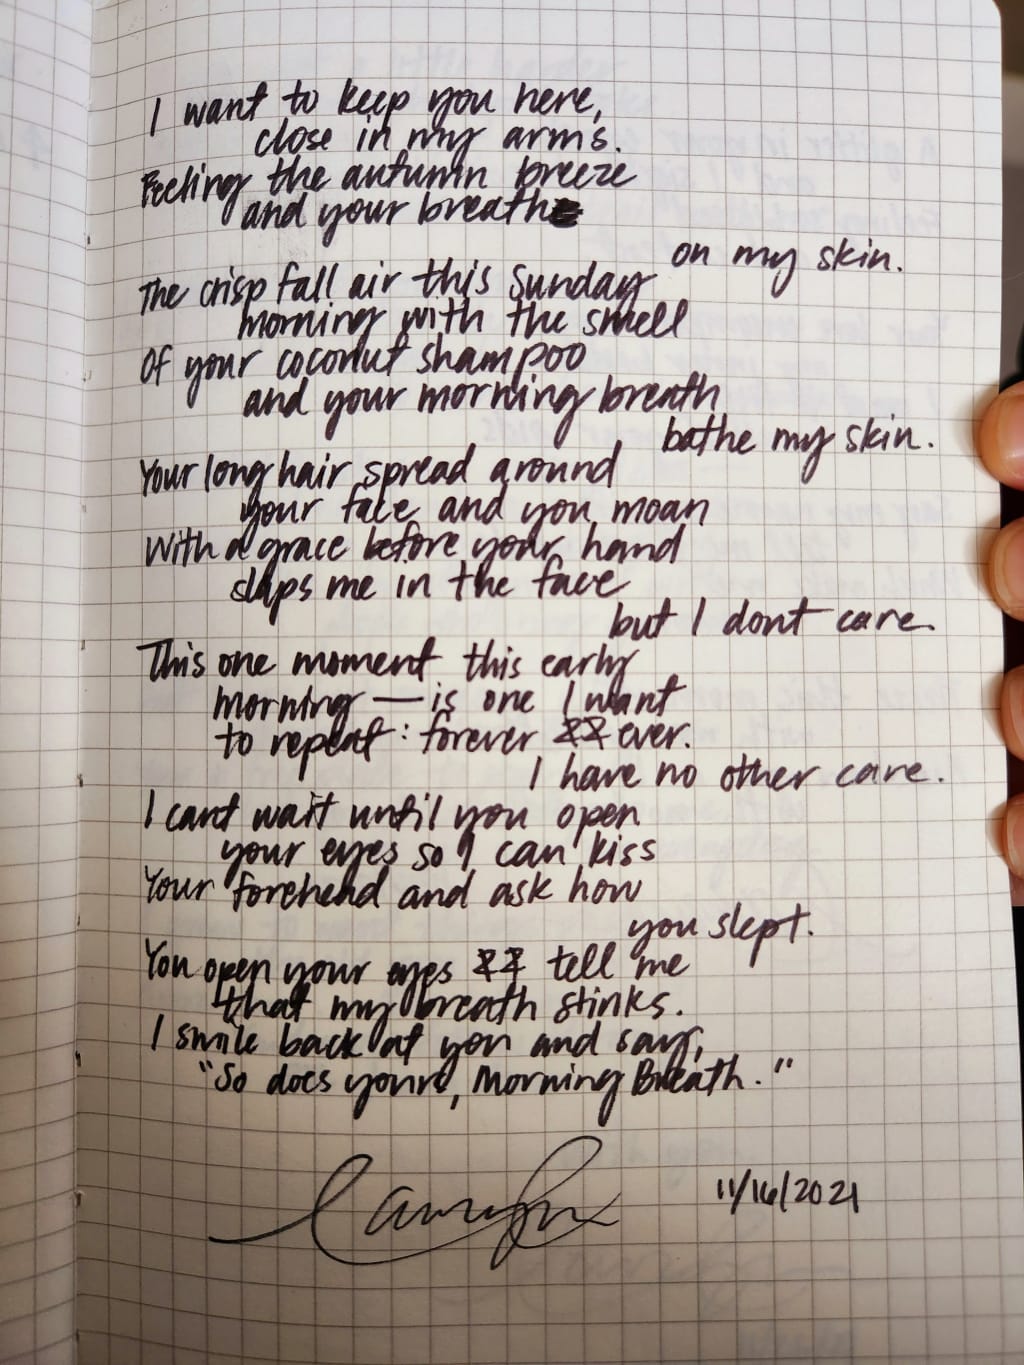 I want to keep you here,
close in my arms.
Feeling the autumn breeze
and your breath
on my skin.
The crisp fall air this Sunday
morning with the smell
Of your coconut shampoo
and your morning breath
bathe my skin.
Your long hair spread around
your face and you moan
With a grace before your hand
slaps me in the face
but I dont care.
This one moment this early
morning — is one I want
to repeat: forever && ever.
I have no other care.
I cant wait until you open
your eyes so I can kiss
Your forehead and ask how
you slept.
You open your eyes && tell me
that my breath stinks.
I smile back at you and say,
"So does yours, Morning Breath."
11/16/2021